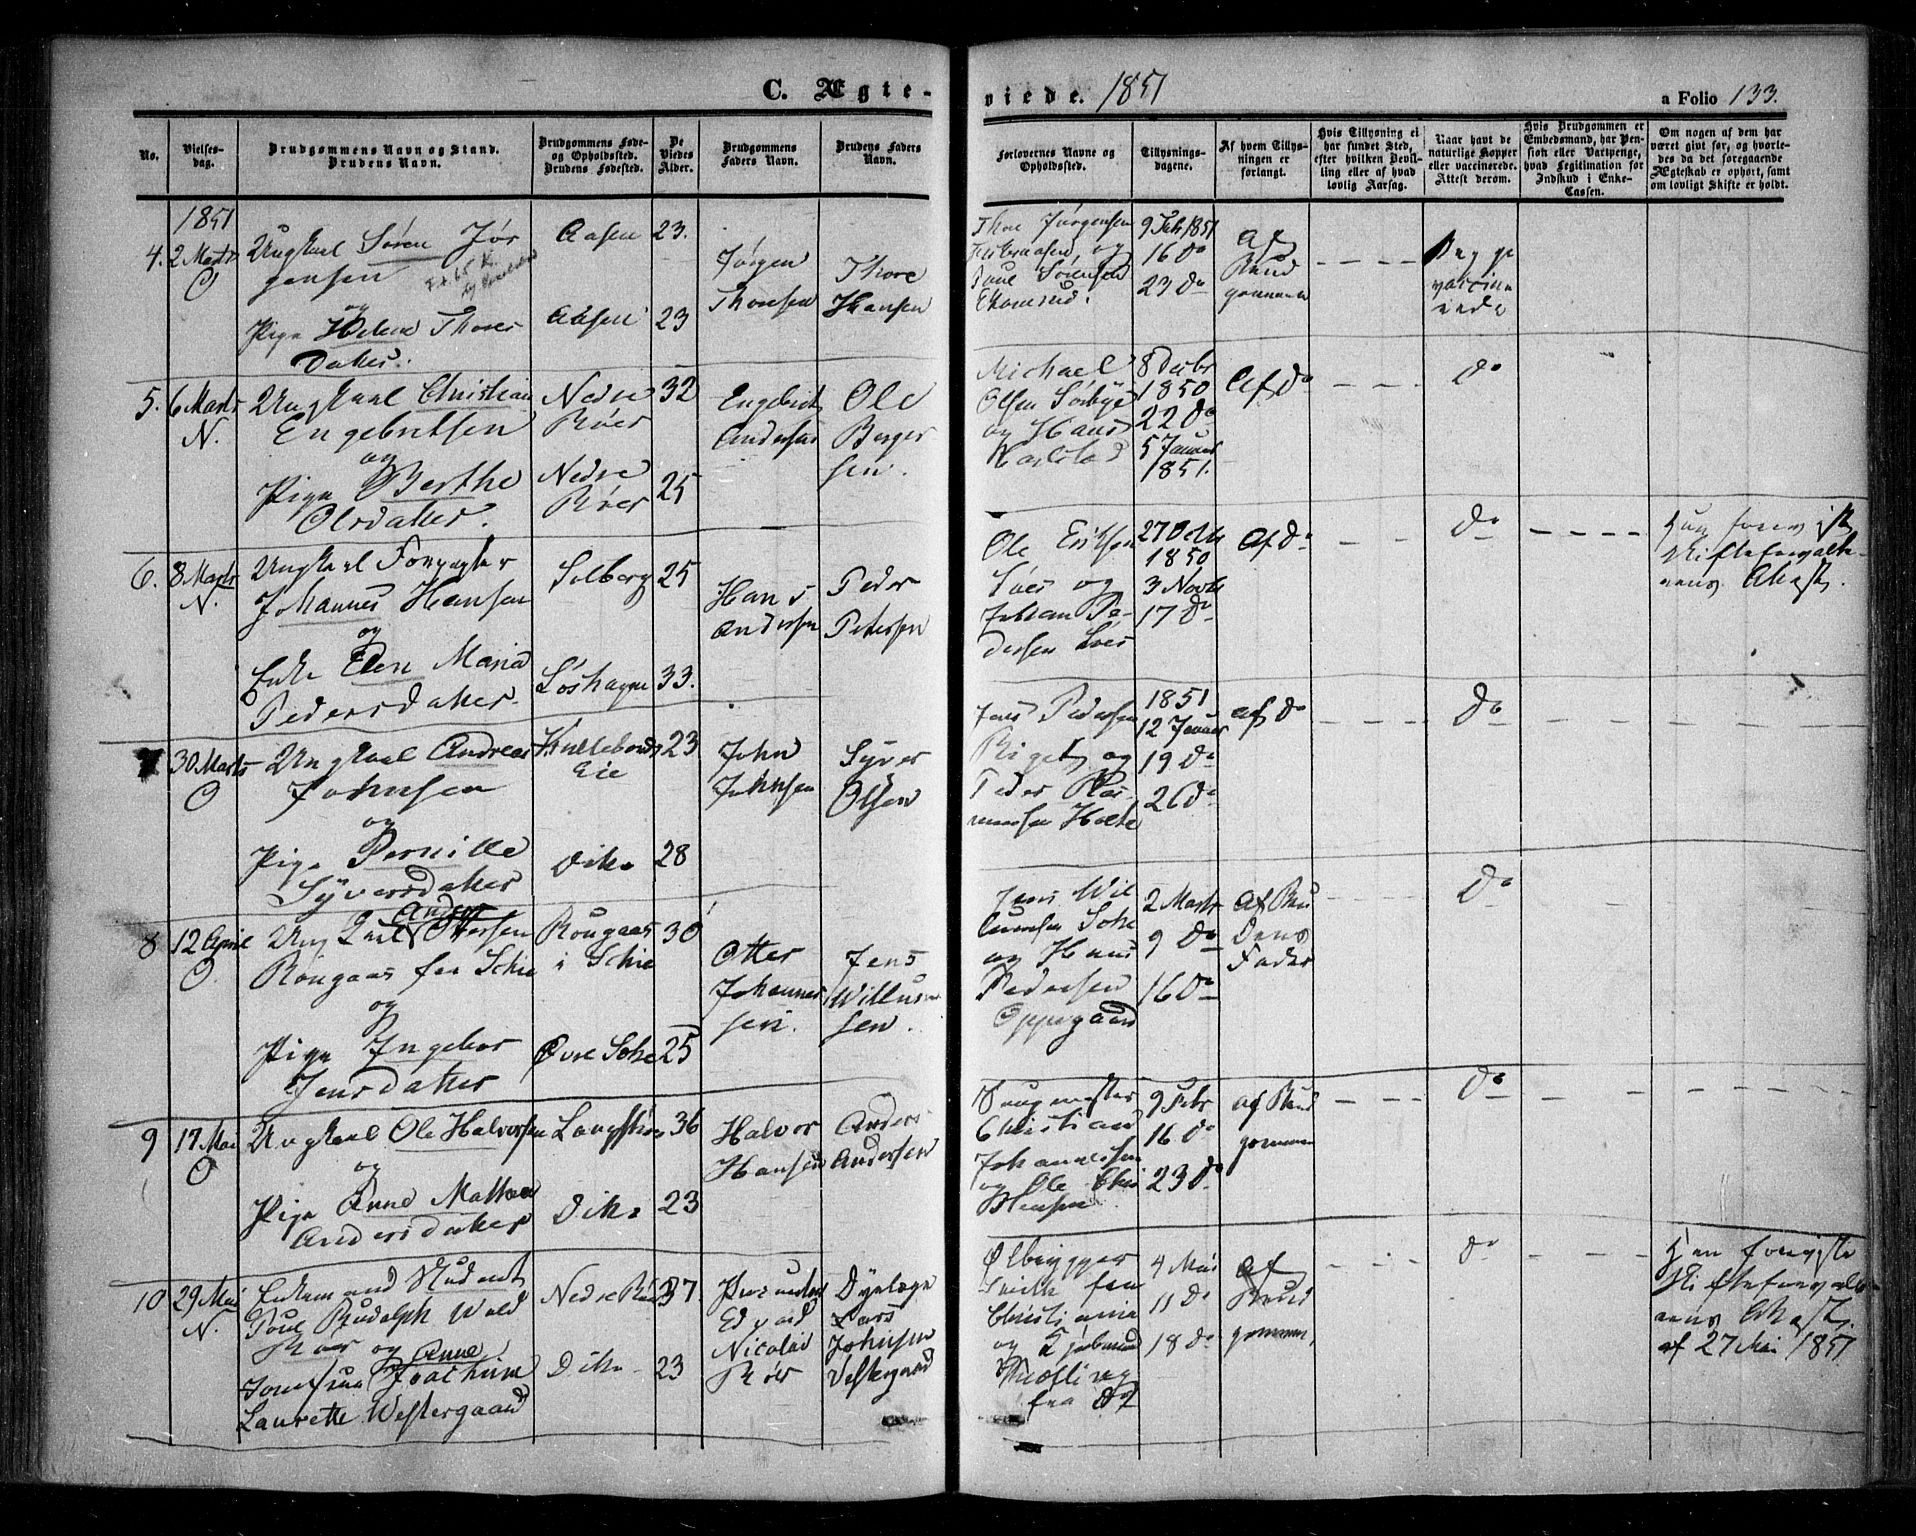 C. Ægte-
viede. 1851
a Folio 133.
No.
Vielses-
dag.
Brudgommens Navn og Stand.
Brudens Navn.
Brudgommens Føde-
og Opholdssted.
Brudens Fødested.
De
Viedes
Alder.
Brudgommens
Faders Navn.
Brudens Faders
Navn.
Forlovernes Navne og
Opholdssted.
Tillysnings-
dagene.
Af hvem Tillys-
ningen er
forlangt.
Hvis Tillysning ei
har fundet Sted,
efter hvilken Bevil-
ling eller af hvad
lovlig Aarsag.
Naar havt de
naturlige Kopper
eller vaccinerede.
Attest derom.
Hvis Brudgommen er
Embedsmand, har Pen-
sion eller Vartpenge,
hvad Legitimation for
Indskud i Enke-
Cassen.
Om nogen af dem har
været givt før, og hvorle-
des da det foregaaende
Ægteskab er ophørt, samt
om lovligt Skifte er holdt.
1851
4. 2 Marts
O
Ungkarl Søren Jør
gensen
og
Pige Helene Thores
Datter.
Aasen 23.
Aasen 23
Jørgen
Thoresen
Thore
Hansen
Thore Jørgensen
og
Poul Sørensen
9 Feb. 1851
16 Do
23 Do
Af
Brud
gommen
Begge
vaccine
rede
5. 6 Marts
N.
Ungkarl Christian
Engebretsen
og
Pige Berthe
Olsdatter.
Nedre
Röer
32
Nedre
Röer
25
Engebret
Andersen
Ole
Berger
sen.
Michael
Olsen Sørbye
og Hans
8 Decbr
1850
22 Do
5 Januar
1851.
Af Do
Do
6. 8 Marts
N.
Ungkarl Forpagter
Johannes Hansen
og
Enke Elen Maria
Pedersdatter.
Solberg 25
33.
Hans
Andersen
Peder
Petersen
Ole Eriksen
Loes og
Johan Pe-
dersen Loes
27 Octb
1850
3 Novb
17 Do
Af Do
Do
Hun foreviste
Skifteforvalte-
rens Attest.
7 30 Marts
O
Ungkarl Andreas
Johnsen
og
Pige Pernille
Syversdatter
Eie
23
Dito 28
John
Johnsen
Syver
Olsen
Jens Pedersen
Riget og
Peder Ras-
mussen Holte
1851
12 Januar
19 Do
26 Do
Af Do
Do
8 12 April
O.
Ung Karl Anders Ottersen
Röngaas fra Schie
og
Pige Ingebor
Jensdatter
Röngaas
i Schie
30
Øvre Sohe 25
Otter
Johannes
sen.
Jens
Willum
sen.
Jens Wil
lumsen Sohe
og Hans
Pedersen
Oppegaard
2 Marts
9 Do
16 Do
Af Bru
dens
Fader
Do
9 17 Mai
O
Ungkarl Ole Halvorsen
og
Pige Anne Mathea
Andersdatter
36
Dito 23
Halvor
Hansen
Anders
Andersen
Christian
Johannesen
og Ole Chri
stiansen
9 Febr
16 Do
23 Do
af Brud
gommen
Do
10 29 Mai
N.
Enkemand Student
Poul Rudolph Wold
Röer og
Jomfrue Anne Joachime
Laurette Westergaard
Nedre Röer 37
Dito 23
Edvard
Nicolai
Röer
Dyrlæge
Lars
Johnsen
Vestergaard
Ølbrygger
fra
Christiania
og
fra do
4 Mai
11 Do
18 Do
Af
Brud
gommen
Do
Han foreviste
Skifteforvalte-
rens Attest
af 27 Mai 1851.